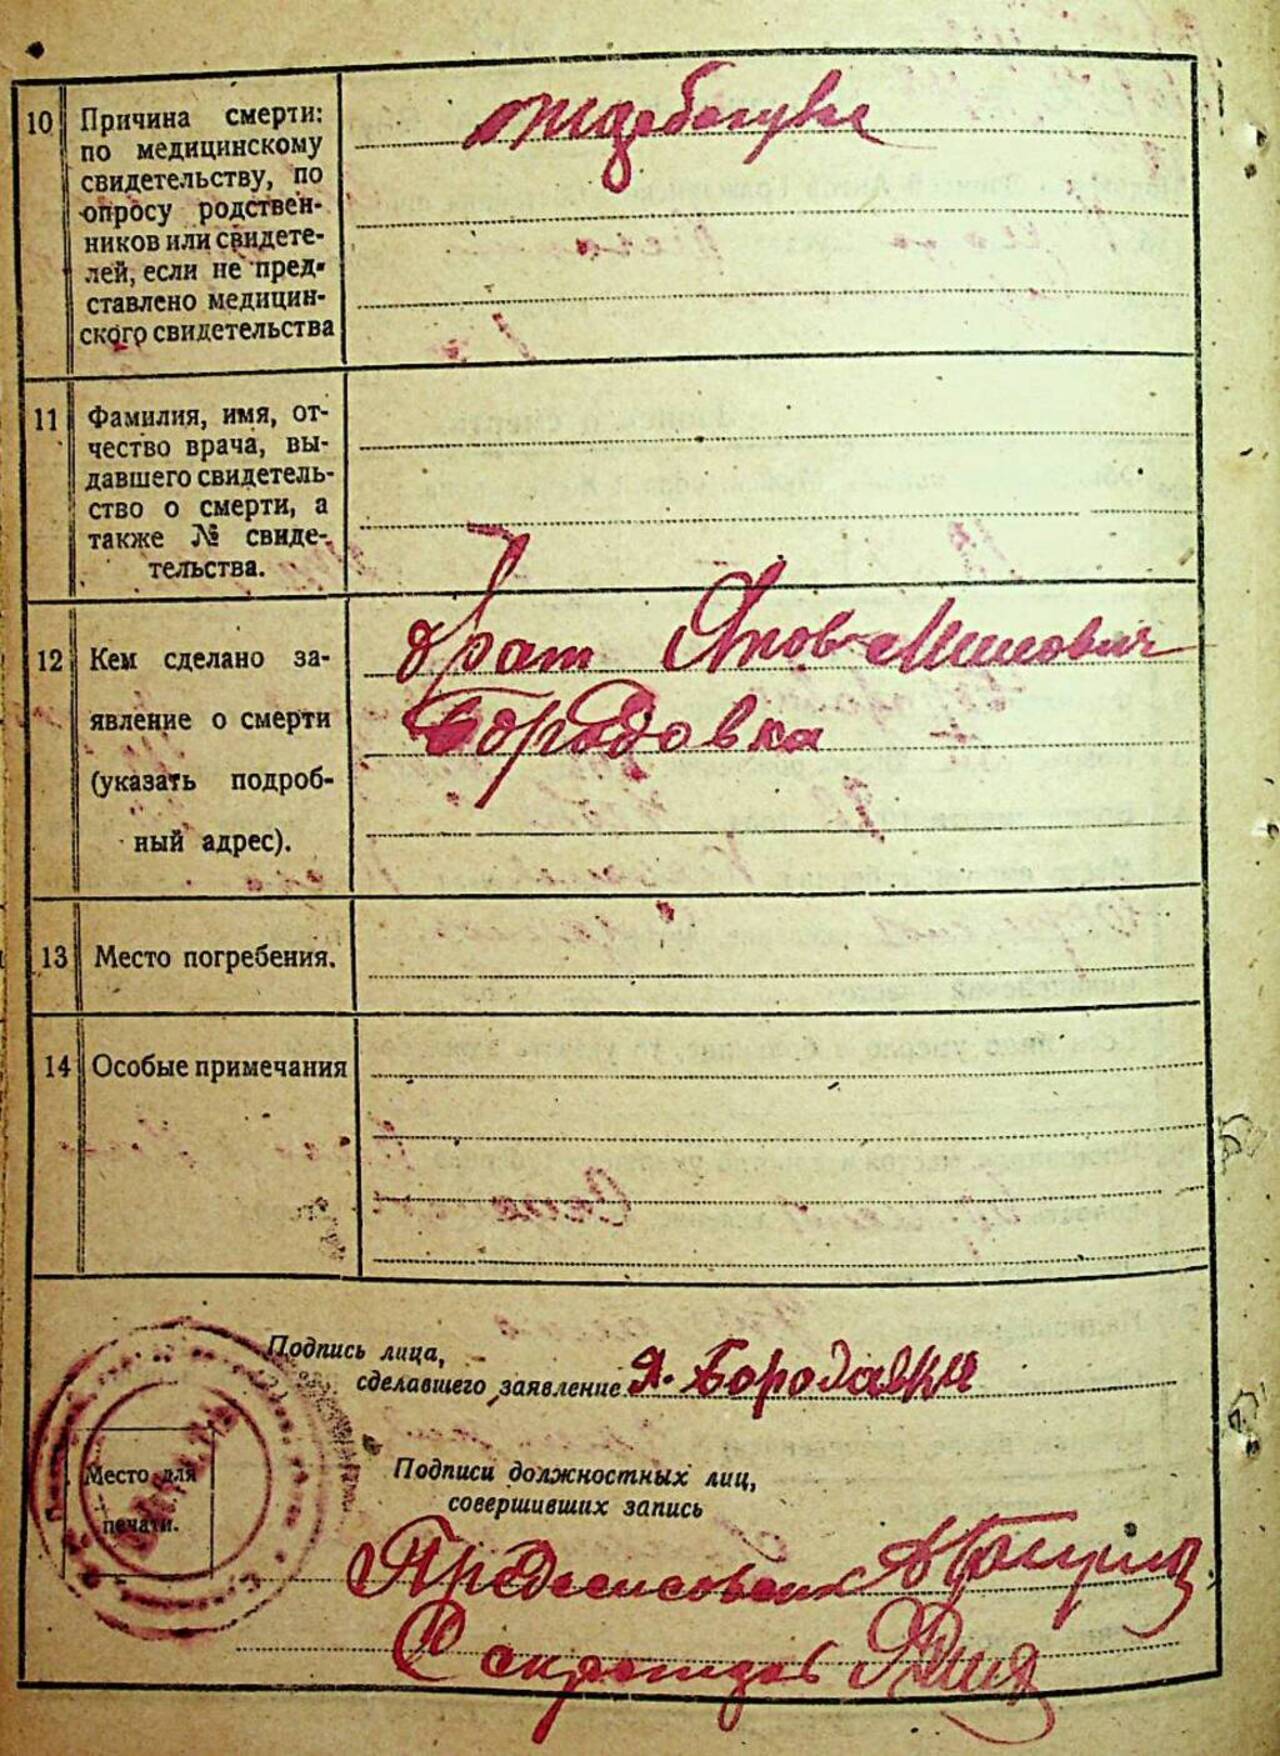 10 Причина смерти:
по медицинскому
свидетельству, по
опросу родствен-
ников или свидете-
лей, если не пред-
ставлено медицин-
ского свидетельства
11 Фамилия, имя, от-
чество врача, вы-
давшего свидетель-
ство о смерти, а
также № свиде-
тельства.
12 Кем сделано за-
явление о смерти
(указать подроб-
ный адрес).
брат Яков
Бородавка
13 Место погребения.
14 Особые примечания
Подпись лица,
сделавшего заявление Я. Бородавка
Место для
печати.
Подписи должностных лиц,
совершивших запись